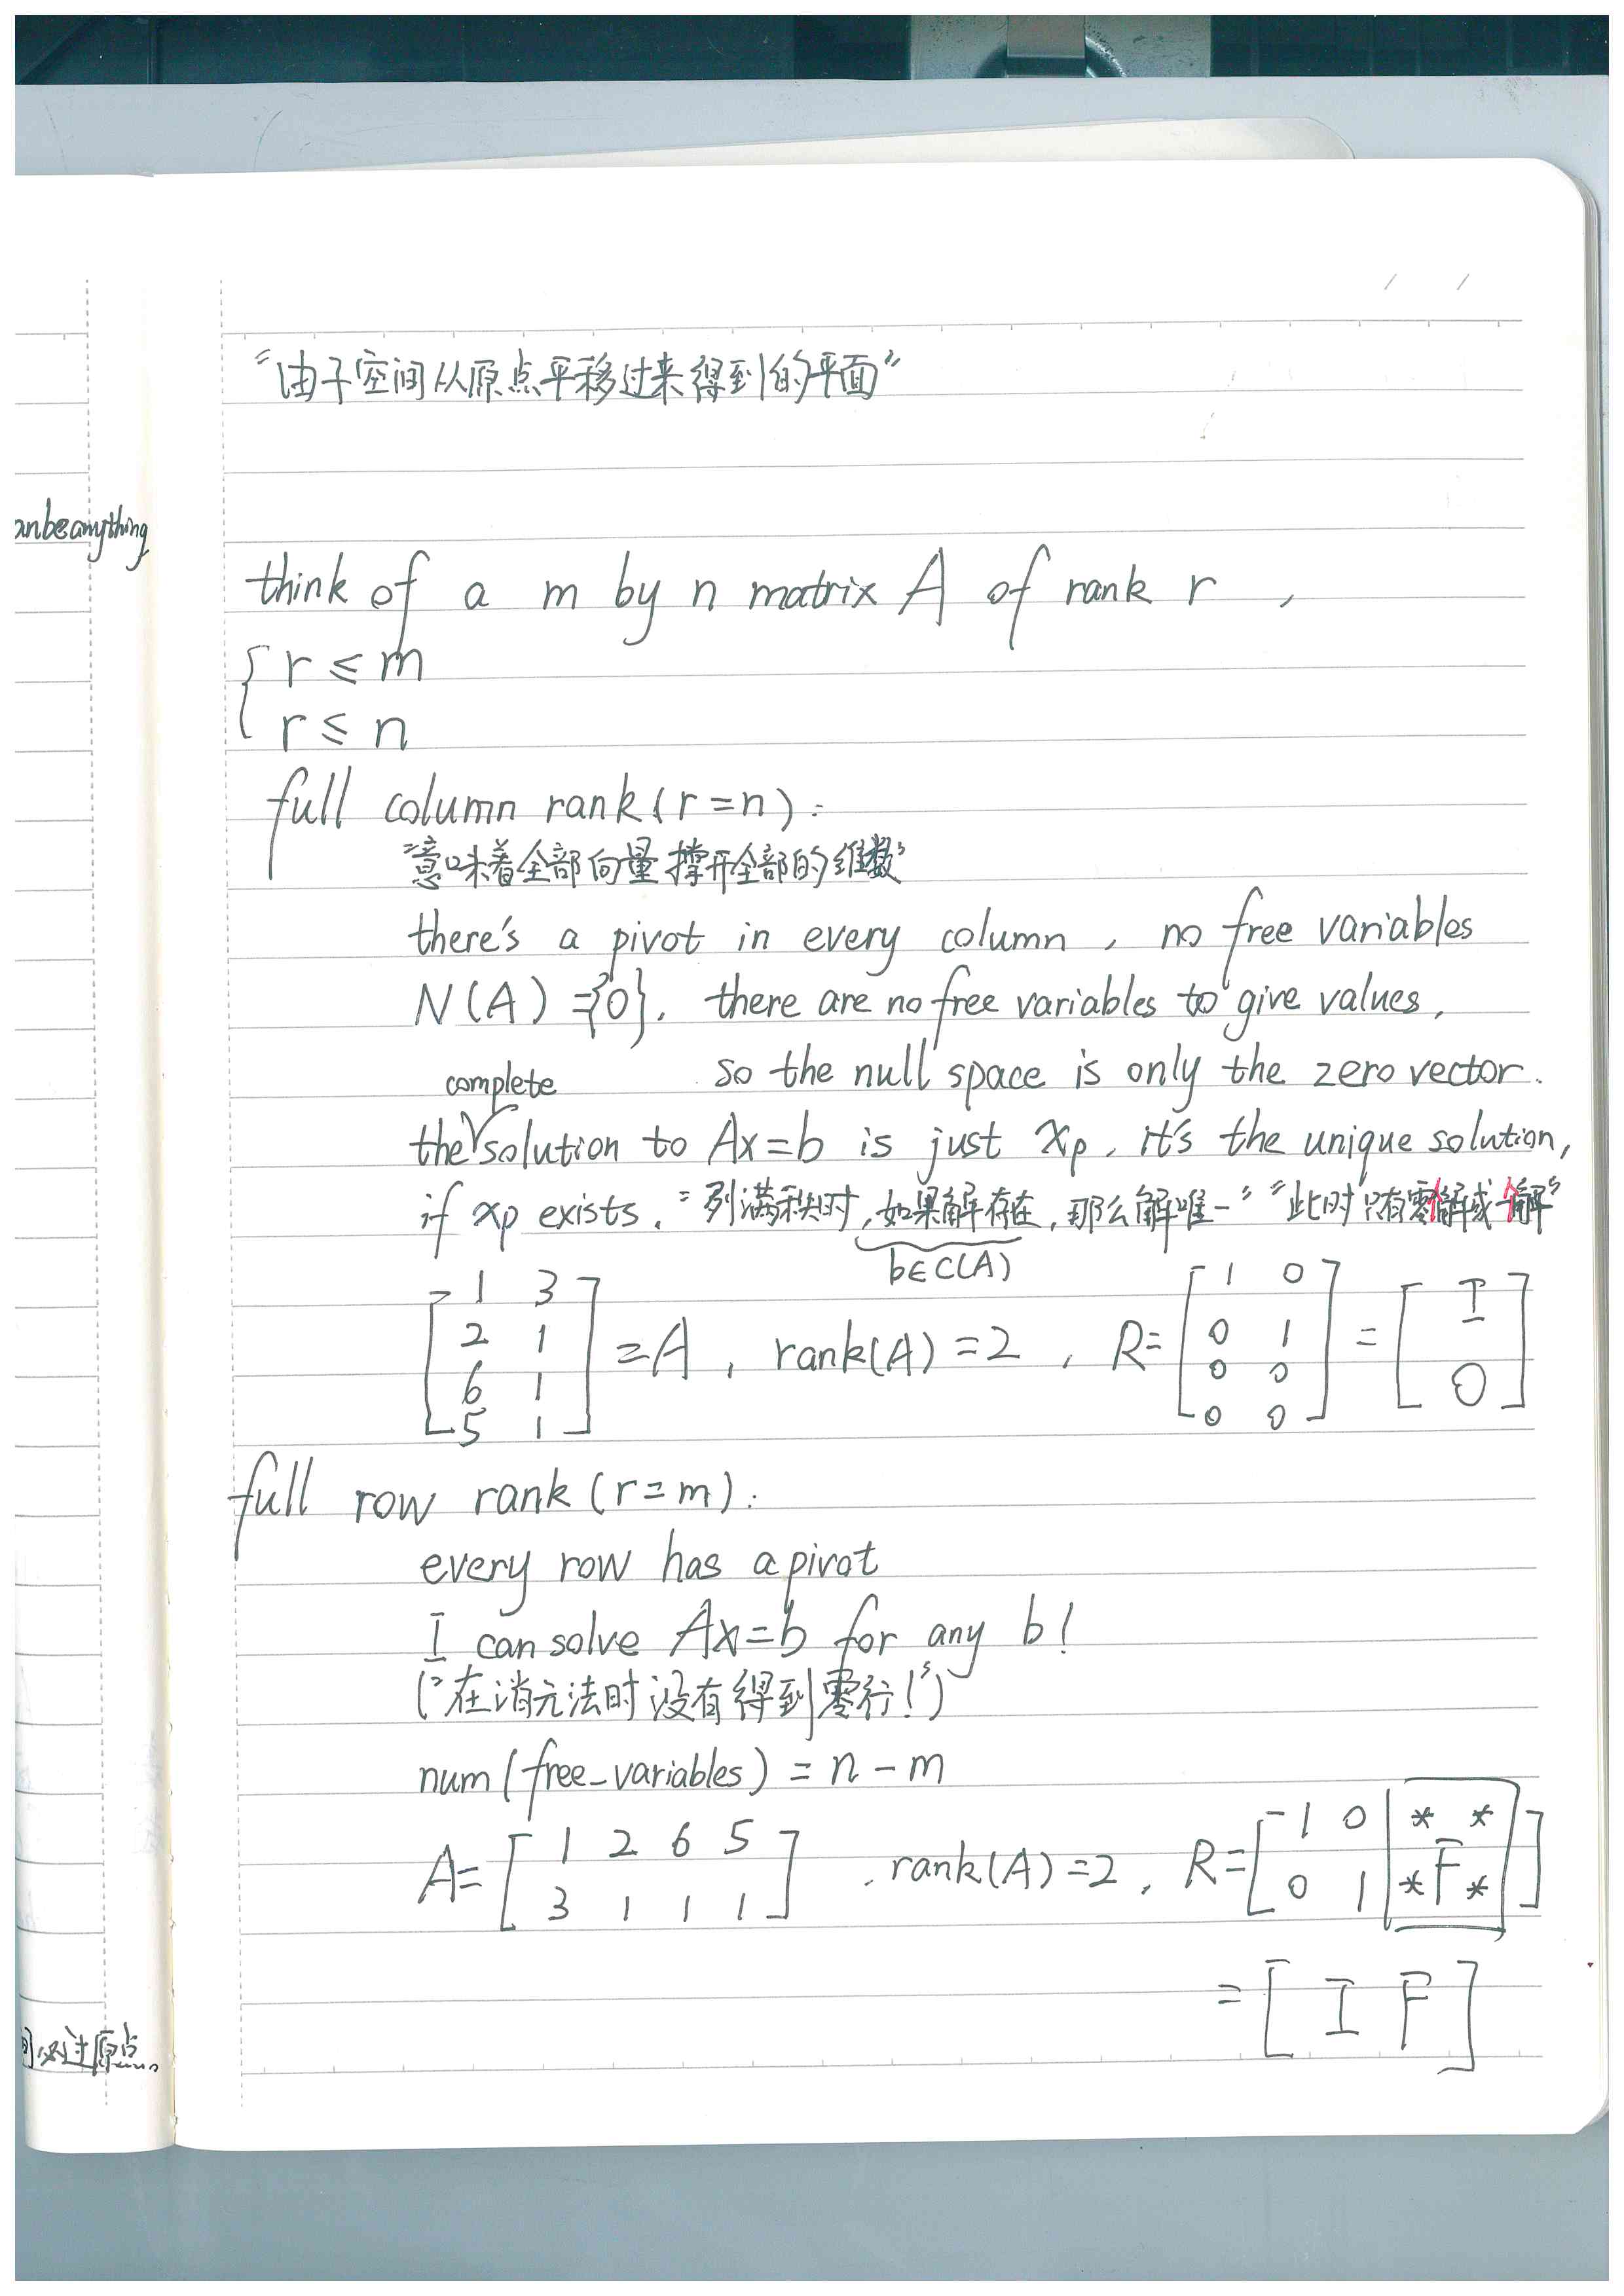 “由子空间从原点平移过来得到的平面”
anbeanything
think of a m by n matrix A of rank r ,
{ r ≤ m
r ≤ n
full column rank (r=n):
“意味着全部向量撑开全部的维数”
there's a pivot in every column , no free variables
N(A) = {0}. there are no free variables to give values,
so the null space is only the zero vector.
complete
the solution to Ax=b is just xp, it's the unique solution,
if xp exists. “列满秩时,如果解存在,那么解唯一” “此时只有零个解或一个解”
b∈C(A)
[1 3; 2 1; 6 1; 5 1] = A , rank(A) = 2 , R = [1 0; 0 1; 0 0; 0 0] = [I; 0]
full row rank (r=m):
every row has a pivot
I can solve Ax=b for any b!
(“在消元法时没有得到零行!”)
num(free_variables) = n - m
A = [1 2 6 5; 3 1 1 1] , rank(A) = 2, R = [1 0 * *; 0 1 * F *]
= [I F]
必过原点